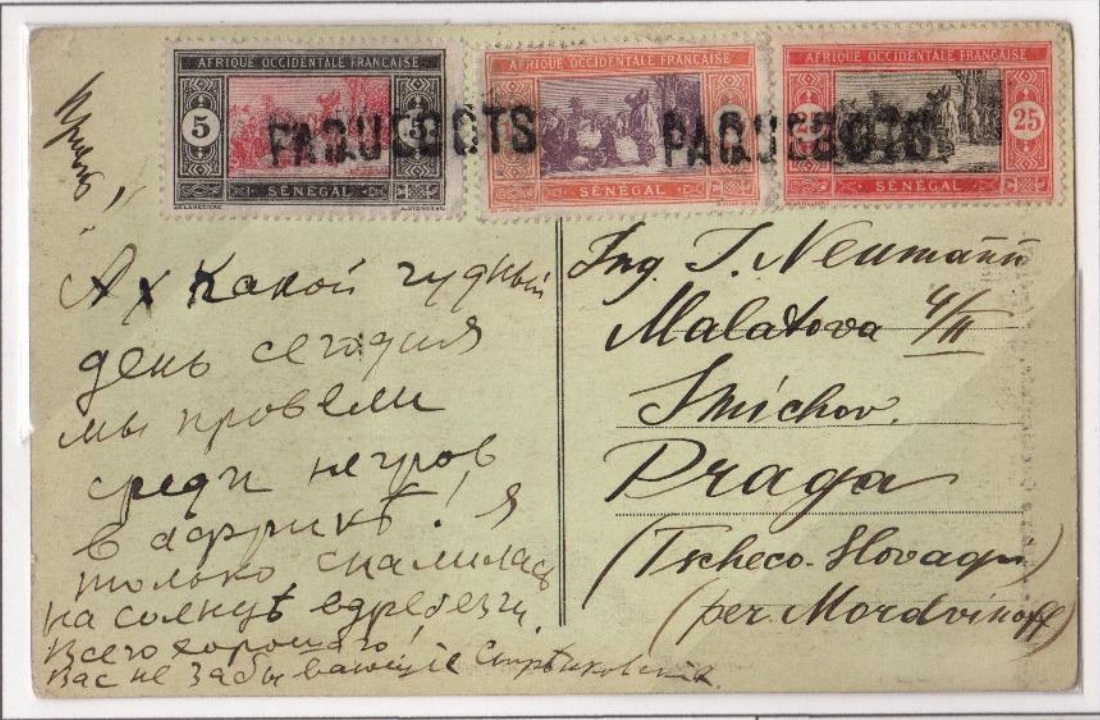 AFRIQUE OCCIDENTALE FRANÇAISE
5
5
SÉNÉGAL
AFRIQUE OCCIDENTALE FRANÇAISE
SÉNÉGAL
AFRIQUE OCCIDENTALE FRANÇAISE
25
25
SÉNÉGAL
PAQUEBOTS
PAQUEBOTS
Ах какой чудный
день сегодня
мы провели
среди негров
в африкѣ! Я
только спалилась
на солнцѣ вдребезги.
Всего хорошаго!
Вас не забывающие
Ing. J. Neumann
Malatova 4/II
Smichov.
Praga
(Tscheco-Slovaqu)
(per. Mordvinoff)